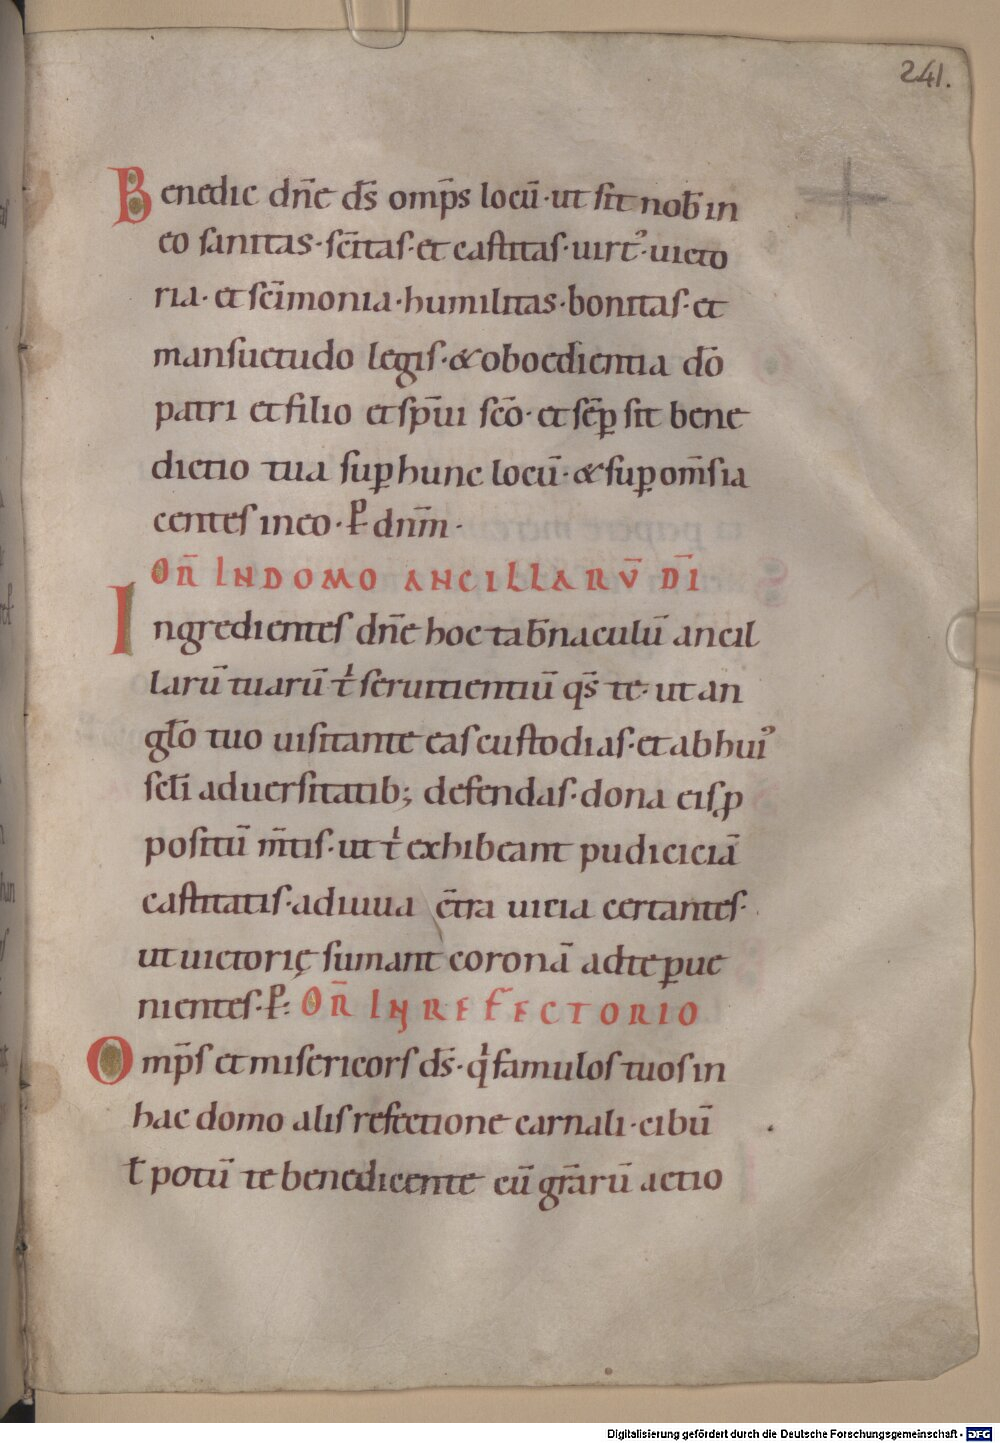 241.
Benedic dn̄e ds̄ omp̄s locū · ut sit nob̄ in
eo sanitas · sc̄itas · et castitas · uirt᷒ · uicto
ria · et sc̄imonia · humilitas · bonitas · et
mansuetudo legis · & oboedientia dō
patri et filio et sp̄ui sc̄o · et sēꝑ sit bene
dictio tua suꝑ hunc locū · & suꝑ om̄s ia
centes in eo · ꝑ dnm̄ ·
OR̄ IN DOMO ANCILLARV̄ DĪ
Ingredientes dn̄e hoc tab̄naculū ancil
larū tuarū t' seruitientiū qs̄ te · ut an
gl̄o tuo uisitante eas custodias · et ab hui᷒
sc̄li aduersitatib; defendas · dona eis ꝓ
positū m̄tis · ut t' exhibeant pudiciciā
castitatis · adiuua c̄tra uicia certantes ·
ut uictorię sumant coronā ad te ꝑue
nientes · ꝑ: OR̄ IN REFECTORIO
Omp̄s et misericors ds̄ · q' famulos tuos in
hac domo alis refectione carnali · cibū
ł potū te benedicente cū gr̄arū actio
Digitalisierung gefördert durch die Deutsche Forschungsgemeinschaft - DFG